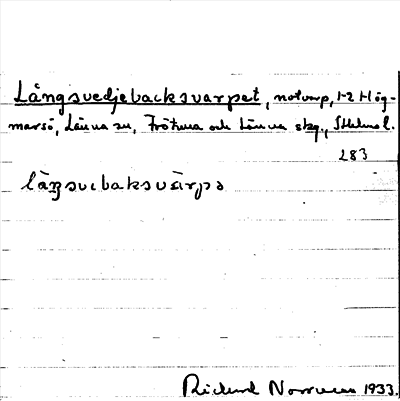 Långsvedjebacksvarpet, notvarp, 1-2 Hög-
marsö, Länna sn, Frötuna och Länna skg., Sthlms l.
283
làŋsvebaksvàrpə
Rickard Norrman 1933.